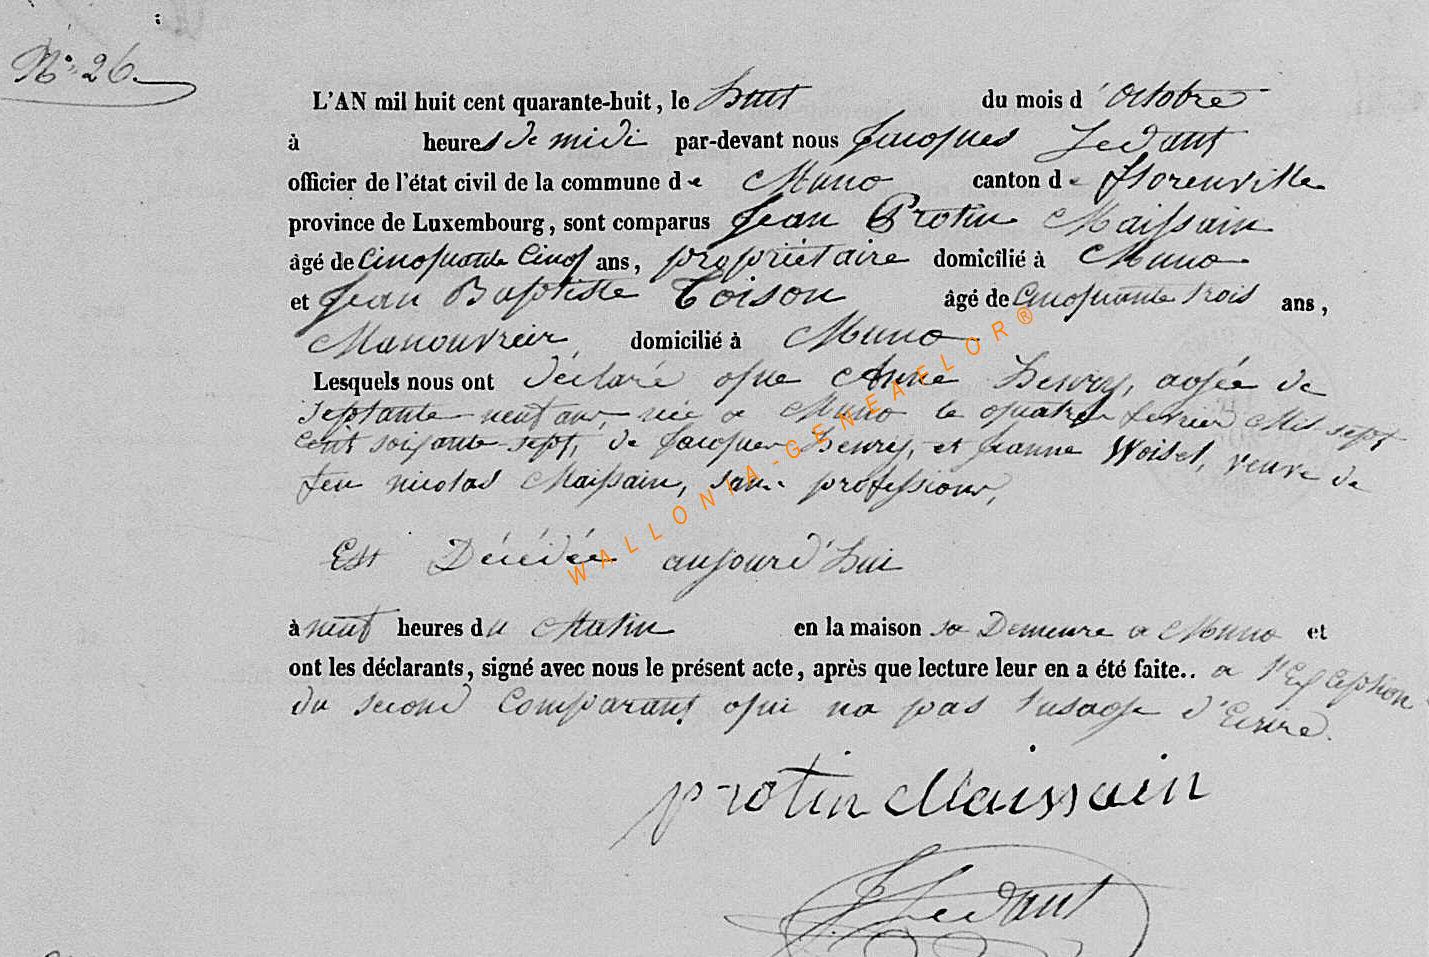 N° 26
L'AN mil huit cent quarante-huit, le huit du mois d'Octobre
à heures de midi par-devant nous Jacques Ledant
officier de l'état civil de la commune de Muno canton de Florenville
province de Luxembourg, sont comparus Jean Protin Maissain
âgé de Cinquante Cinq ans, propriétaire domicilié à Muno
et Jean Baptiste Toison âgé de Cinquante trois ans,
Manouvrier domicilié à Muno
Lesquels nous ont déclaré que Anne Henry, agée de
septante neuf ans, née a Muno le quatre fevrier Mil sept
cent soixante sept, de Jacques Henry, et Jeanne Woisel, veuve de
feu nicolas Maissain, sans profession,
Est Décédée aujourd'hui
à neuf heures du Matin en la maison sa Demeure a Muno et
ont les déclarants, signé avec nous le présent acte, après que lecture leur en a été faite.. a l'Exception
du second Comparant qui na pas l'usage d'Ecrire.
protin Maissain
J Ledant
WALLONIA-GENEAFLOR®